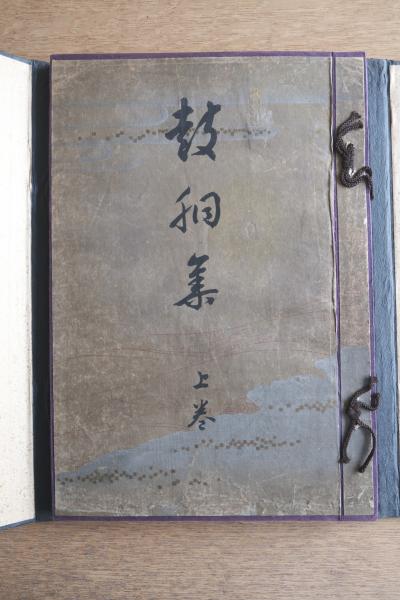 鼓胴集
上巻